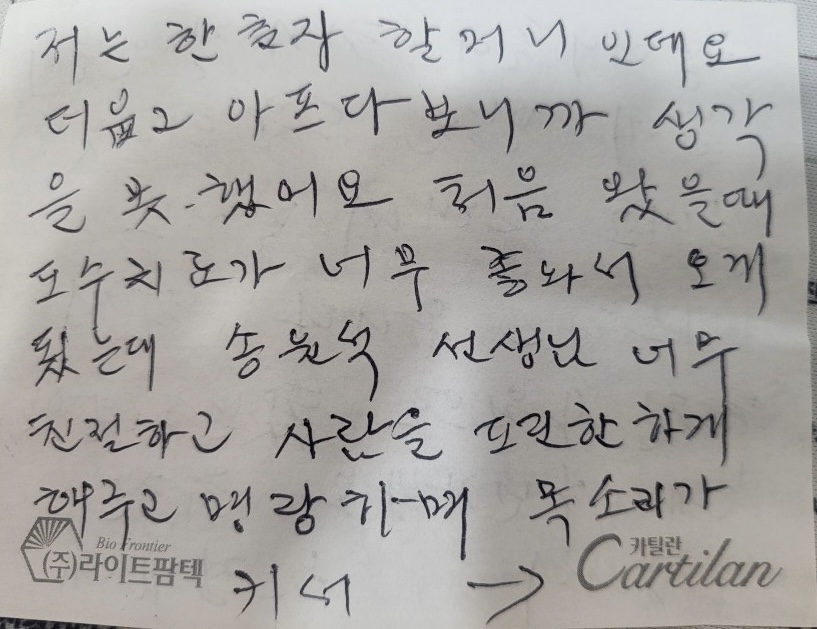 저는 한춘자 할머니 인데요
더웁고 아프다 보니까 생각
을 못.했어요 처음 왔을때
도수치료가 너무 좋와서 오게
됬는데 송원석 선생님 너무
친절하고 사람을 편한하게
해주고 명랑하며 목소리가
커서 →
Bio Frontier
(주)라이트팜텍
카틸란
Cartilan